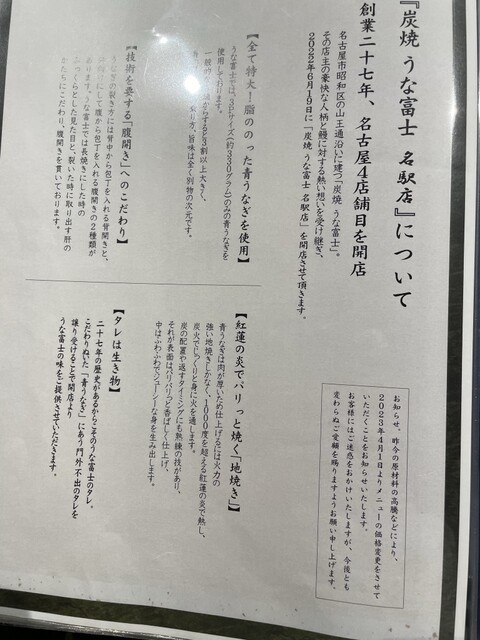 『炭焼 うな富士 名駅店』について
創業二十七年、名古屋4店舗目を開店
名古屋市昭和区の山王通沿いに建つ「炭焼 うな富士」。
その店主の豪快な人柄と鰻に対する熱い想いを受け継ぎ、
2022年6月19日に「炭焼 うな富士 名駅店」を開店させて頂きます。
【全て特大!脂ののった青うなぎを使用】
うな富士では、3Pサイズ(約330グラム)のみの青うなぎを
使用しております。
からすると3割以上大きく、
旨味は全く別物の次元です。
【技術を要する「腹開き」へのこだわり】
うなぎの裂き方には背中から包丁を入れる背開きと、
にして腹から包丁を入れる腹開きの2種類が
あります。うな富士では長焼きにした時の
ふっくらとした見た目と、裂いた時に取り出す肝の
かたちにこだわり、腹開きを貫いております。
お知らせ、昨今の原材料の高騰などにより、
2023年4月1日よりメニューの価格変更をさせて
いただくことをお知らせいたします。
お客様にはご迷惑をおかけいたしますが、今後とも
変わらぬご愛顧を賜りますようお願い申し上げます。
【紅蓮の炎でパリっと焼く「地焼き」】
青うなぎは肉が厚いため仕上げるには火力の
強い地焼きしかなく、1000度を超える紅蓮の炎で熱し、
炭火でじっくりと身に火を通します。
炭の配置や返すタイミングにも熟練の技があり、
それが表面はパリパリっと香ばしく仕上げ、
中はふわふわでジューシーな身を生み出します。
【タレは生き物】
二十七年の歴史があるからこそのうな富士のタレ。
こだわりぬいた「青うなぎ」にあう門外不出のタレを
譲り受けることで開店より、
うな富士の味をご提供させていただきます。